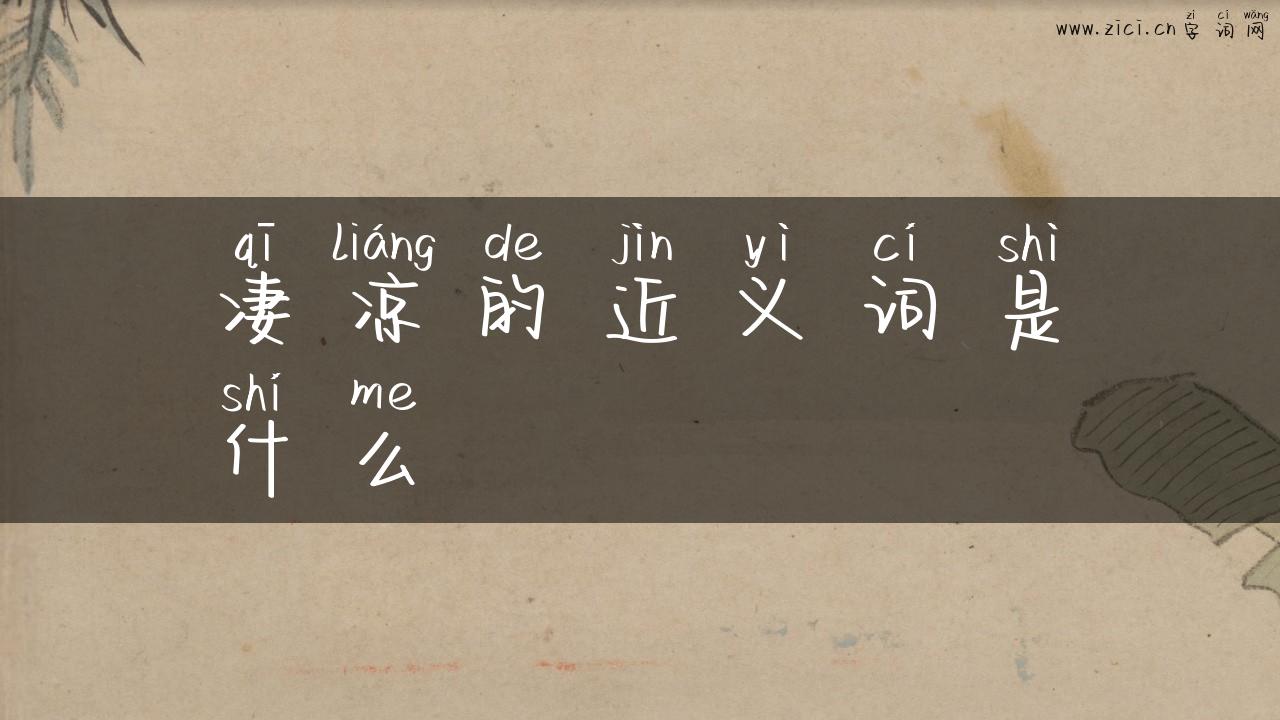 zì cí wǎng
www.zici.cn 字 词 网
qī liáng de jìn yì cí shì
凄 凉 的 近 义 词 是
shí me
什 么